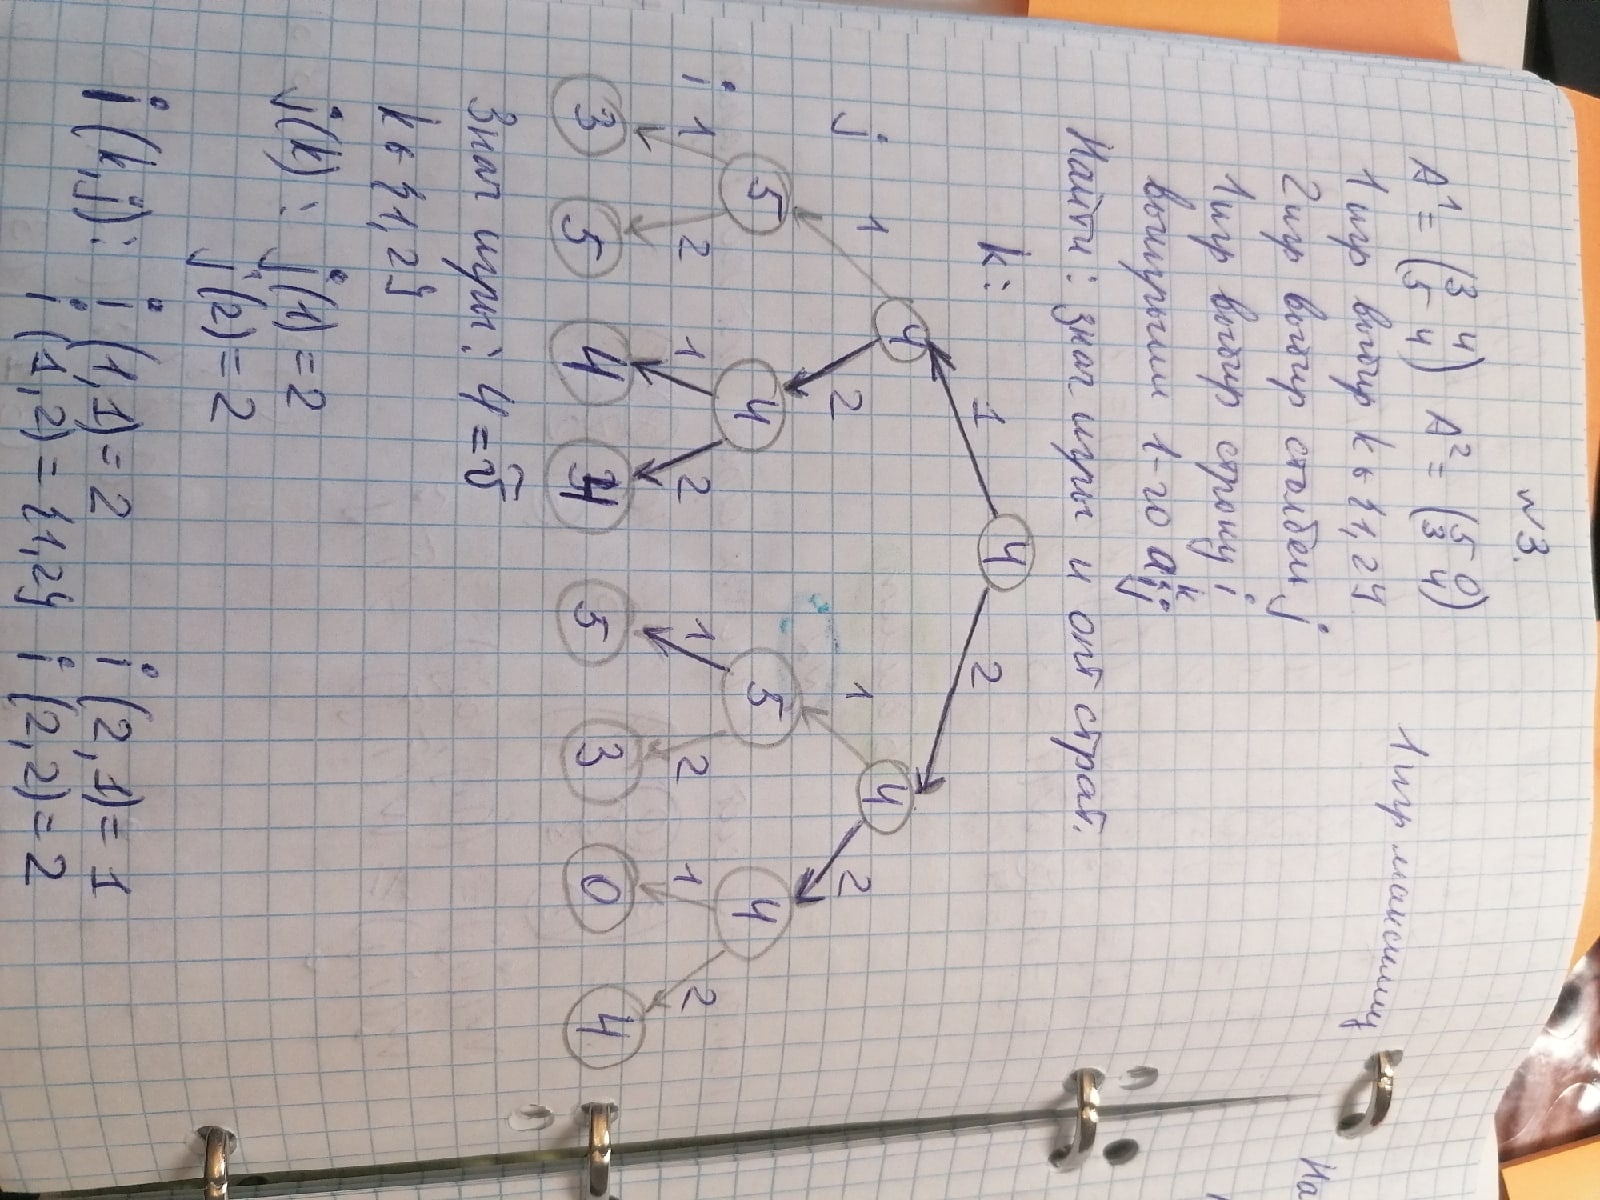 №3.
A¹ = (3 4
5 4) A² = (5 0
3 4) 1 игр максимиз
1 игр выбир k ∈ {1,2}
2 игр выбир столбец j
1 игр выбир строку i
выигрыш 1-го aᵏᵢⱼ
Найти: знач игры и опт страт.
k:
4
1 2
4 4
j
1 2 1 2
5 4 5 4
i 1 2 1 2 1 2 1 2
3 5 4 4 5 3 0 4
Знач игры: 4 = v̂
k ∈ {1,2}
j(k): j(1) = 2
j(2) = 2
i(k,j): i(1,1) = 2 i(2,1) = 1
i(1,2) = {1,2} i(2,2) = 2
На